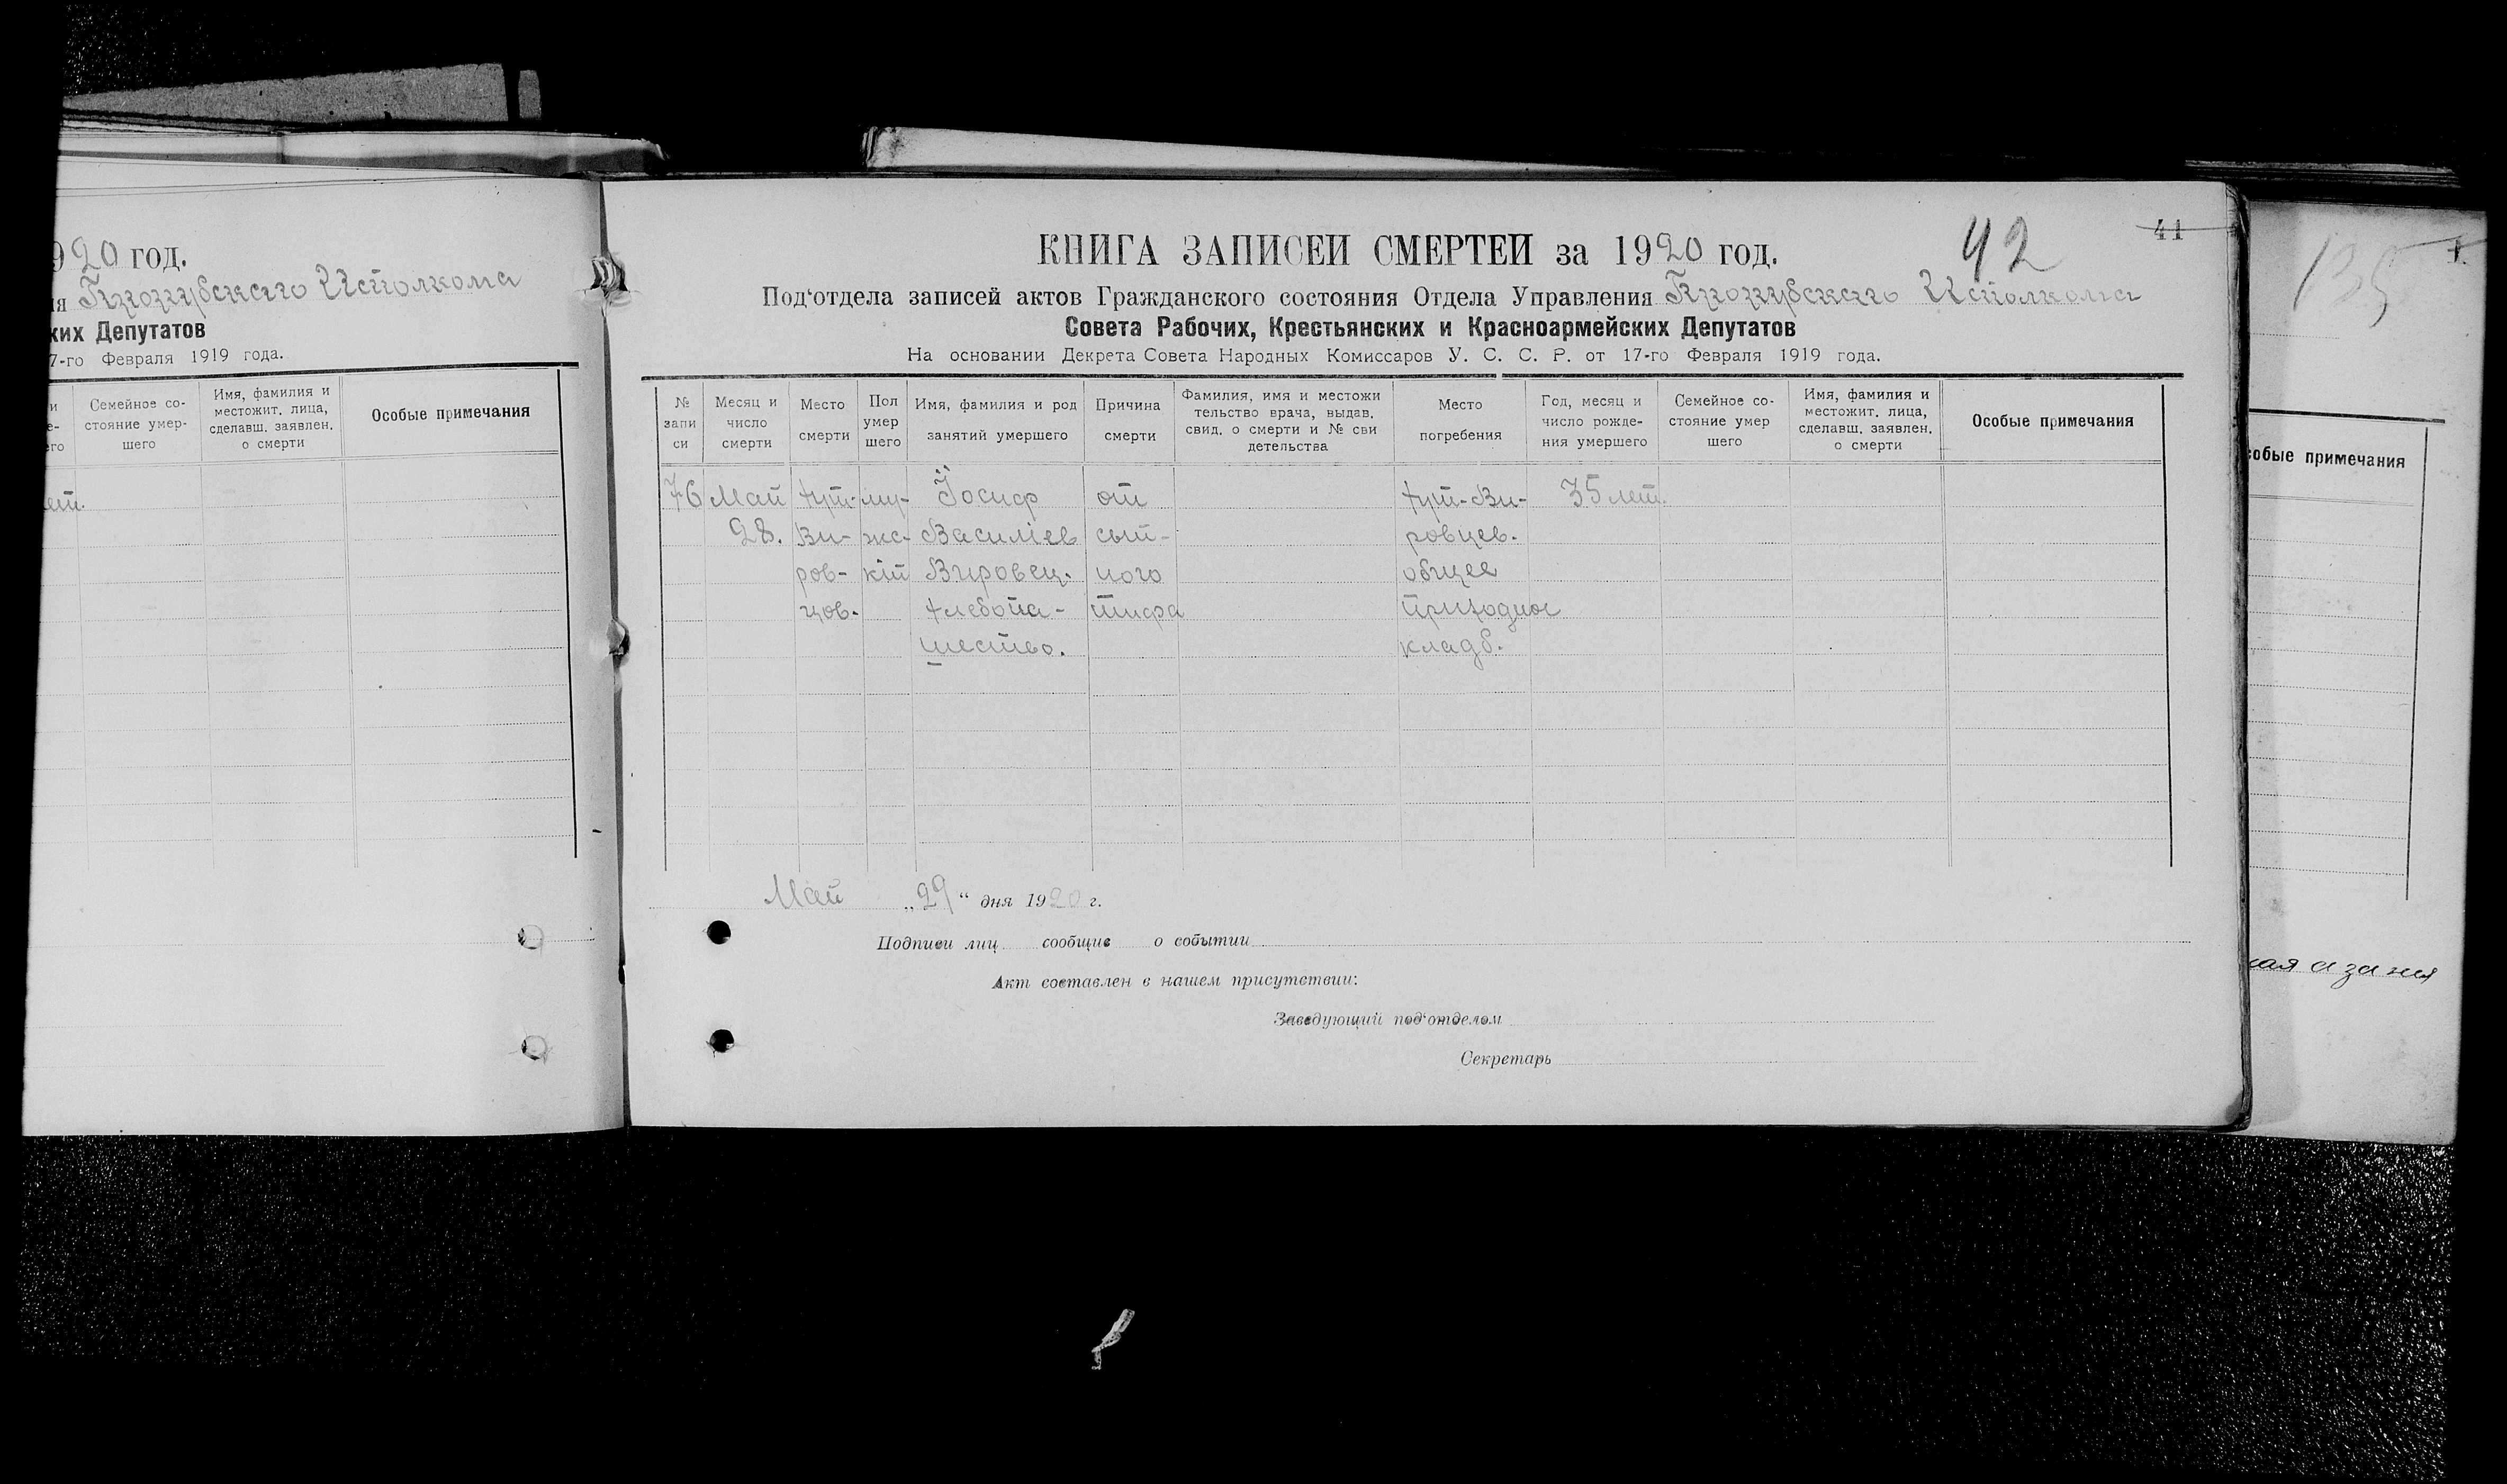 920 год.
ия Гирозивского Исполкома
ких Депутатов
7-го Февраля 1919 года.
Семейное со-
стояние умер-
шего
Имя, фамилия и
местожит. лица,
сделавш. заявлен.
о смерти
Особые примечания
лет.
42
41
КНИГА ЗАПИСЕЙ СМЕРТЕЙ за 1920 год.
Под'отдела записей актов Гражданского состояния Отдела Управления Исполкома
Совета Рабочих, Крестьянских и Красноармейских Депутатов
На основании Декрета Совета Народных Комиссаров У. С. С. Р. от 17-го Февраля 1919 года.
№
запи
си
Месяц и
число
смерти
Место
смерти
Пол
умер
шего
Имя, фамилия и род
занятий умершего
Причина
смерти
Фамилия, имя и местожи
тельство врача, выдав.
свид. о смерти и № сви
детельства
Место
погребения
Год, месяц и
число рожде-
ния умершего
Семейное со-
стояние умер
шего
Имя, фамилия и
местожит. лица,
сделавш. заявлен.
о смерти
Особые примечания
76
Май
28.
хут.
Ви-
ров-
цов.
му-
жс-
кій
Іосиф
Василіев
Вировец.
хлебопа-
шество.
от
сып-
ного
тифа
хут-Ви-
ровцев.
общее
приходное
кладб.
35 лет.
Май „29“ дня 1920 г.
Подписи лиц сообщив о событии
Акт составлен в нашем присутствии:
Заведующий под'отделом
Секретарь
135
1.
собые примечания